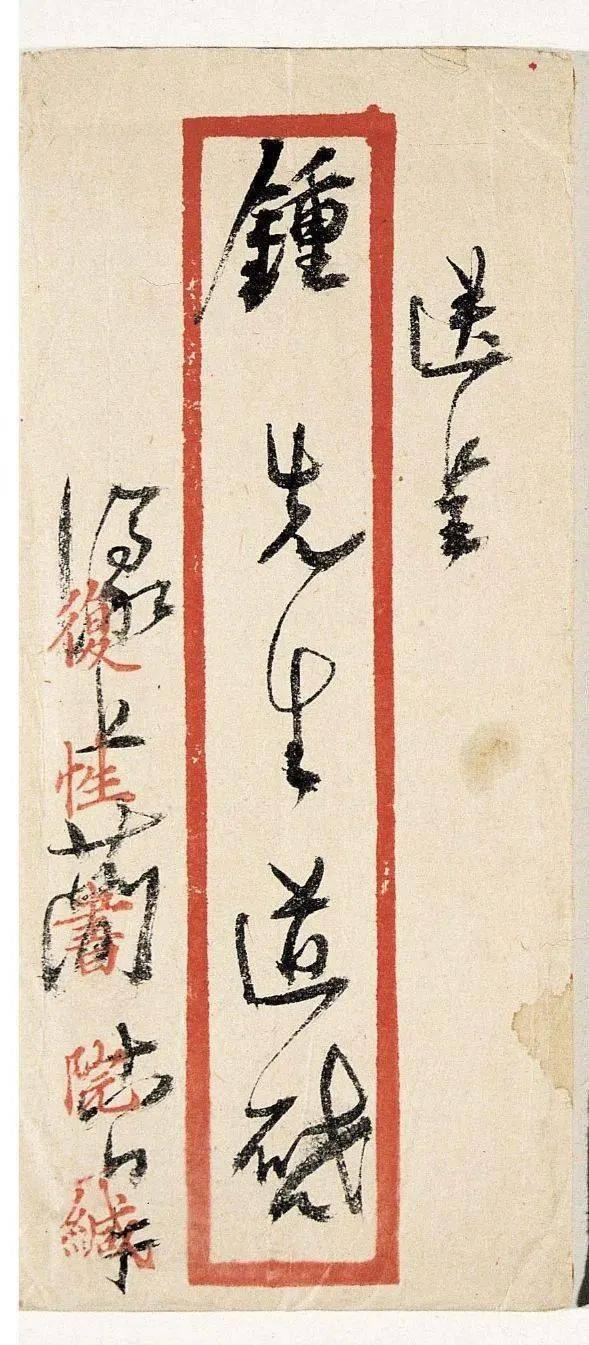 送呈
鍾先生道啟
濠上
復性書院緘